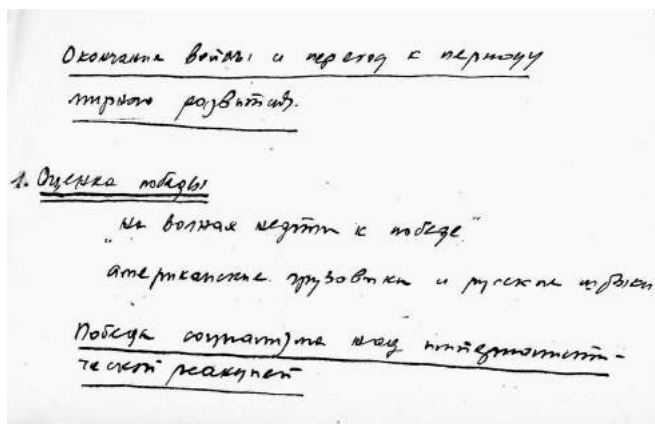 Окончание войны и переход к периоду
мирного развития.
1. Оценка победы
"на волнах нефти к победе"
американские грузовики и русские штыки
Победа социализма над империалисти-
ческой реакцией